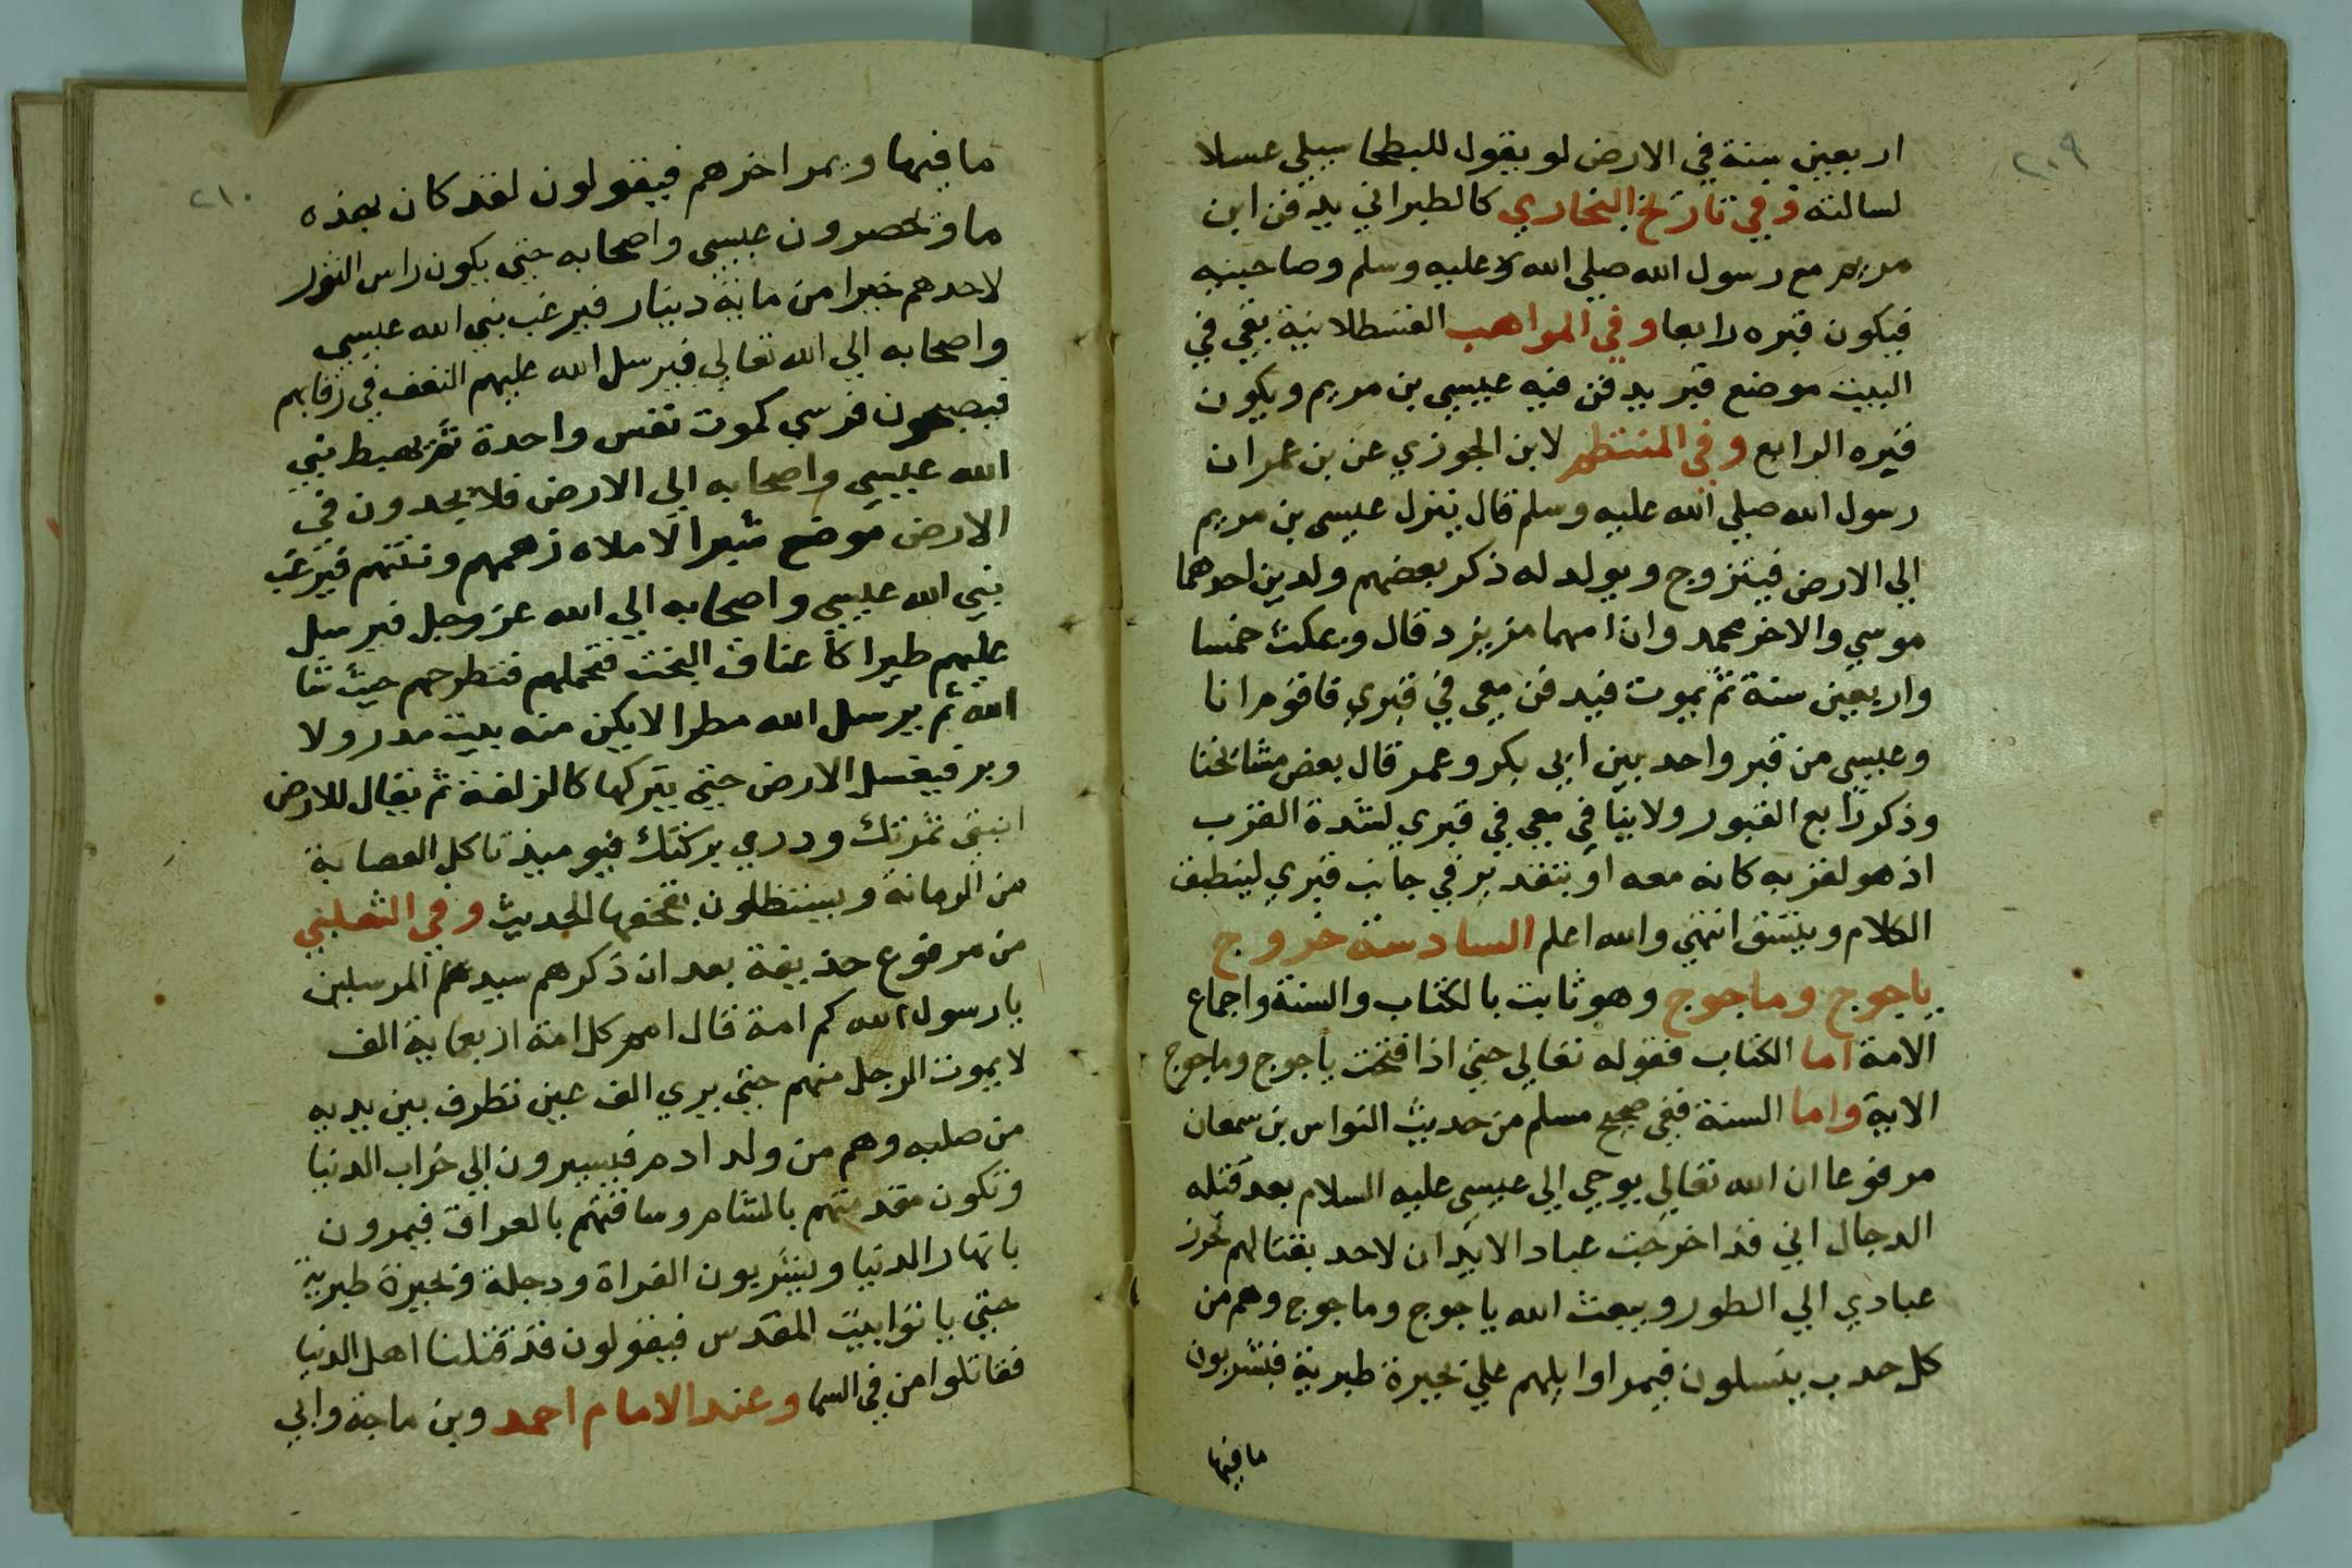 ٢٠٩
اربعين سنة في الارض لو يقول للبطحا سيلي عسلا
لسالته وفي تاريخ البخاري كالطبراني يدفن ابن
مريم مع رسول الله صلي الله عليه وسلم وصاحبيه
فيكون قبره رابعا وفي المواهب القسطلانية بقي في
البيت موضع قبر يدفن فيه عيسى بن مريم ويكون
قبره الرابع وفي المنتظم لابن الجوزي عن بن عمران
رسول الله صلي الله عليه وسلم قال ينزل عيسى بن مريم
الي الارض فيتزوج ويولد له ذكر بعضهم ولدين احدهما
موسي والاخر محمد وان امهما من يزد قال ويمكث خمسا
واربعين سنة ثم يموت فيدفن معي في قبري فاقوم انا
وعيسى من قبر واحد بين ابي بكر وعمر قال بعض مشائخنا
وذكر رابع القبور ولا ينافي معي في قبري لشدة القرب
اذ هو لقربه كانه معه او بتقدير في جانب قبري لينطبق
الكلام ويتسق انتهي والله اعلم السادسة خروج
ياجوج وماجوج وهو ثابت بالكتاب والسنة واجماع
الامة اما الكتاب فقوله تعالي حتي اذا فتحت ياجوج وماجوج
الاية واما السنة ففي صحيح مسلم من حديث النواس بن سمعان
مرفوعا ان الله تعالي يوحي الي عيسى عليه السلام بعد قتله
الدجال اني قد اخرجت عباد الا يدان لاحد بقتالهم فحرز
عبادي الي الطور ويبعث الله ياجوج وماجوج وهم من
كل حدب ينسلون فيمر اوايلهم علي بحيرة طبرية فيشربون
ما فيها
٢١٠
ما فيها ويمر اخرهم فيقولون لقد كان بهذه
ما ويحصرون عيسى واصحابه حتي يكون راس الثور
لاحدهم خيرا من ماية دينار فيرغب نبي الله عيسى
واصحابه الي الله تعالي فيرسل الله عليهم النغف في رقابهم
فيصبحون فرسي كموت نفس واحدة ثم يهبط نبي
الله عيسي واصحابه الي الارض فلا يجدون في
الارض موضع شبرا الا ملاه زهمهم ونتنهم فيرغب
نبي الله عيسي واصحابه الي الله عز وجل فيرسل
عليهم طيرا كاعناق البخت فتحملهم فتطرحهم حيث شا
الله ثم يرسل الله مطرا لا يكن منه بيت مدر ولا
وبر فيغسل الارض حتي يتركها كالزلفة ثم يقال للارض
انبتي ثمرتك ودري بركتك فيوميذ تاكل العصابة
من الرمانة ويستظلون بقحفها الحديث وفي الثعلبي
من مرفوع حذيفة بعد ان ذكرهم سيد المرسلين
يا رسول الله كم امة قال امم كل امة اربعماية الف
لا يموت الرجل منهم حتي يري الف عين تطرف بين يديه
من صلبه وهم من ولد ادم فيسيرون الي خراب الدنيا
وتكون مقدمتهم بالشام وساقتهم بالعراق فيمرون
بانهار الدنيا ويشربون الفراة ودجلة وبحيرة طبرية
حتي ياتوا بيت المقدس فيقولون قد قتلنا اهل الدنيا
فقاتلوا من في السما وعند الامام احمد وبن ماجة وابي